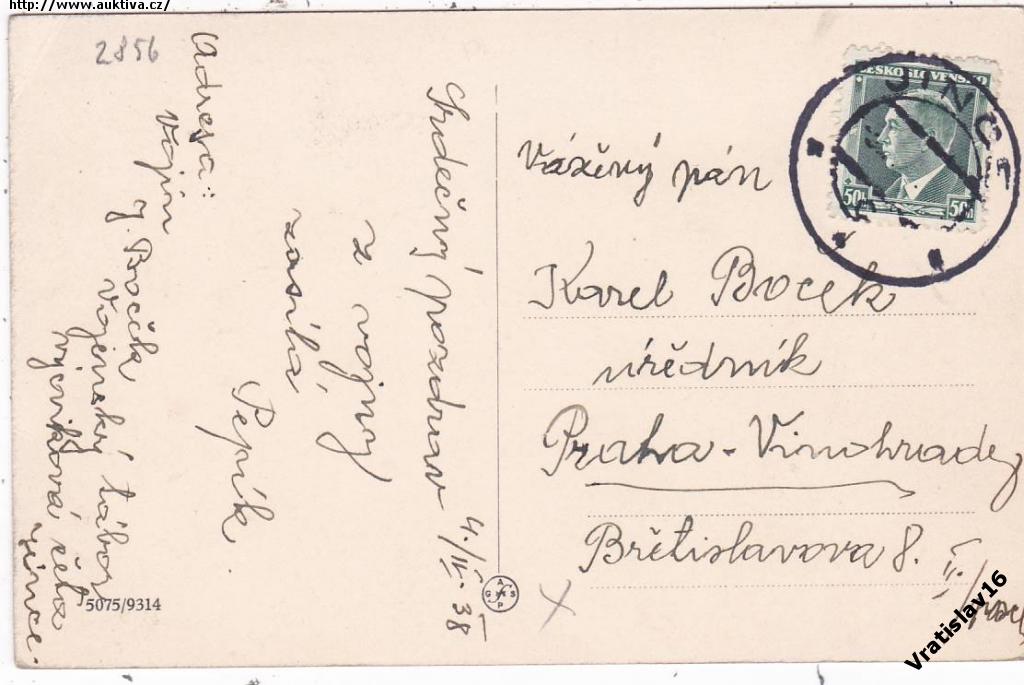 http://www.auktiva.cz/
2856
Adresa:
Vojín
J. Boček
Vojenský tábor
výcviková četa
Jince.
Srdečný pozdrav
z vojny
zasílá
Pepík
4./IV. 38
5075/9314
ČESKOSLOVENSKO
50h 50h
JINCE
Vážený pán
Karel Bocek
úředník
Praha - Vinohrady
Břetislavova 8.
II./
Vratislav16